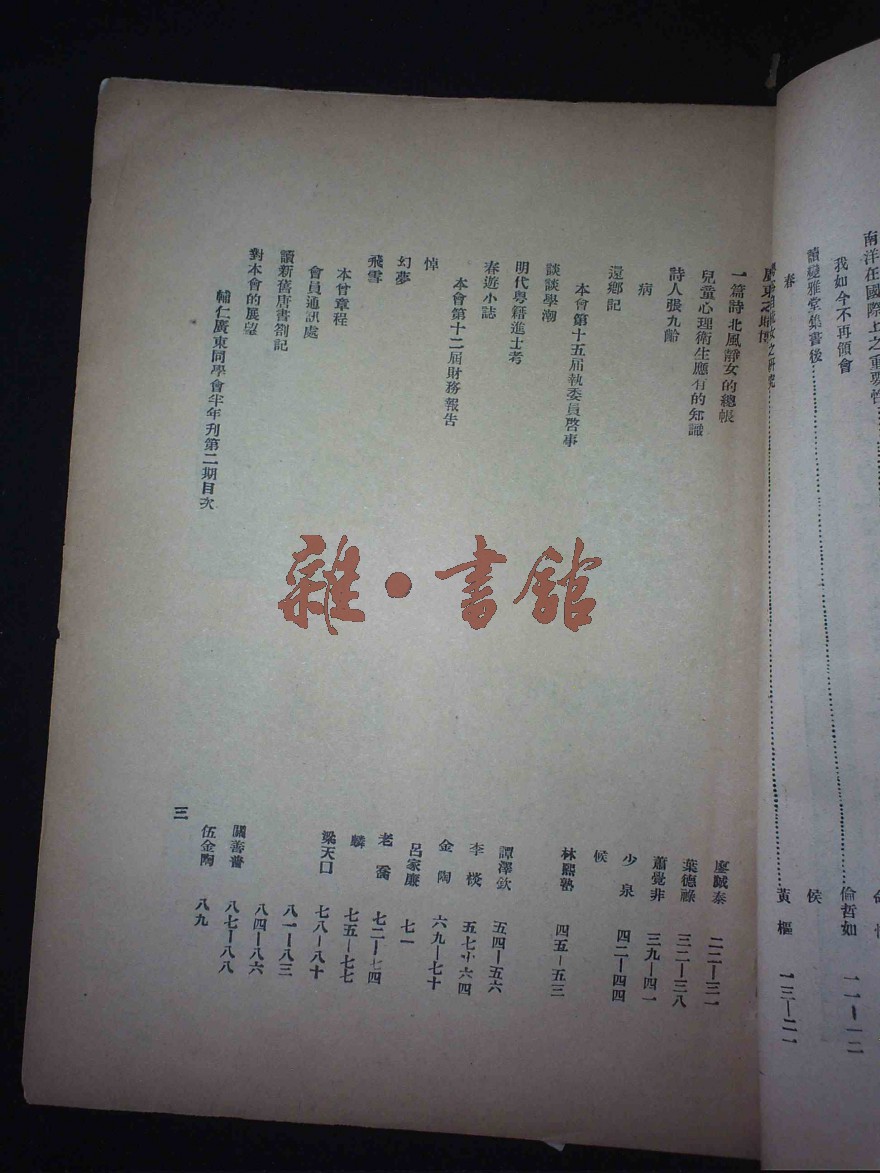 南洋在國際上之重要性
我如今不再領會
倫哲如 一一—一二
讀變雅堂集書後
春
侯
黃樞 一三—二一
一篇詩北風靜女的總帳
廖誠泰 二二—三一
兒童心理衛生應有的知識
葉德祿 三二—三八
詩人張九齡
蕭覺非 三九—四一
病
少泉 四二—四四
還鄉記
候
本會第十五届執委員啓事
談談學潮
林熙塾 四五—五三
明代粵籍進士考
春遊小誌
譚澤欽 五四—五六
本會第十二届財務報告
李棪 五七—六四
悼
金陶 六九—七十
幻夢
呂家廉 七一
飛雪
老喬 七二—七四
本會章程
麟 七五—七七
會員通訊處
梁天口 七八—八十
讀新舊唐書劄記
八一—八三
對本會的展望
八四—八六
關善普 八七—八八
伍金陶 八九
輔仁廣東同學會半年刊第二期目次
三
雜·書館